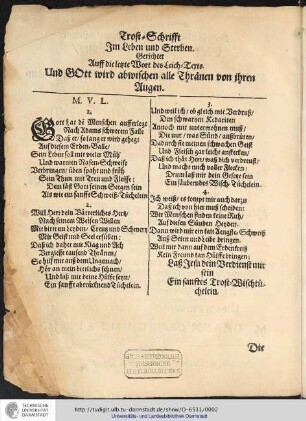 Trost-Schrifft
Im Leben und Sterben.
Gerichtet
Auff die letzte Wort des Leich-Texts.
Und GOtt wird abwischen alle Thränen von ihren
Augen.
M. V. L.
1.
GOtt hat dē Menschen aufferlegt
Nach Adams schwerem Falle
Daß er/ so lang er wird gehegt
Auf diesem Erden-Balle/
Sein Leben soll mit vieler Müh
Und warmen Nasen-Schweiß
Verbringen/ über spaht und früh
Sein Thun mit Treu und Fleisse:
Dem läst Gott seinen Seegen sein
Als wie ein sanfft Schweiß-Tüchelein
2.
Will Herr dein Väterliches Hertz
Nach seinem Weisen Willen
Mir hier ein beyden/ Creutz und Schmertz
Mir Geist und Seel erfüllen:
Daß ich daher mit Klag und Ach
Vergiesse tausend Thränen/
So hilf mir auß dem Ungemach/
Hör an mein sehnliches sehnen/
Und laß mir deine Hülffe seyn/
Ein sanfft abtrücknend Tüchelein.
3.
Und weil ich/ ob gleich mit Verdruß/
Den schwartzen
Annoch mit unterwohnen muß/
Die nur/ was Sünd/ außbrüten/
Dadurch sie meinen schwachen Geist
Und Fleisch gar leicht anstecken/
Daß ich thät Herr/ was dich verdreust/
Und mache mich voller Flecken:
Dran laß mir dein Gesetze sein
Ein säuberndes Wisch-Tüchelein.
4.
Ich weiß/ es kompt mir auch darzu
Daß ich von hier muß scheiden:
Wir Menschen finden keine Ruh/
Auf diesen Sünden Heyden:
Dann wird mir ein kalt Aengste-Schweiß
Auß Stirn und Leibe dringen:
Weil mir dann auf dem Erdenkreiß
Kein Freund kan Hülffe bringen:
Laß Jesu dein Verdienst mir
sein
Ein sanfftes Trost-Wischtü-
chelein.
Die
TECHNISCHE
UNIVERSITÄT
DARMSTADT
http://tudigit.ulb.tu-darmstadt.de/show/O-6531/0002
Universitäts- und Landesbibliothek Darmstadt